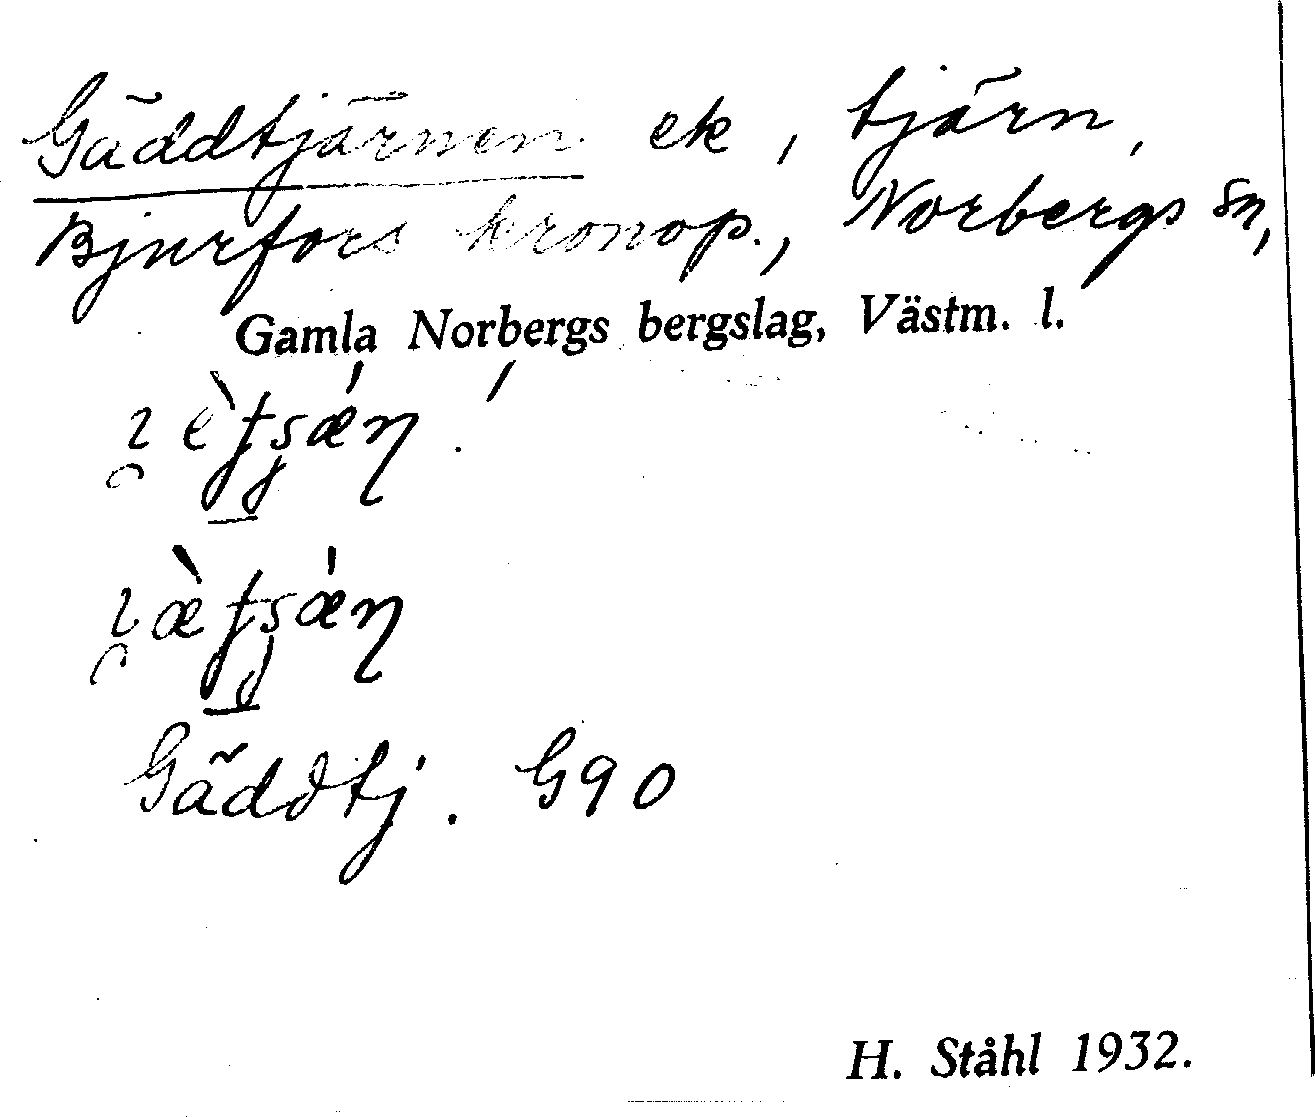 Gäddtjärnen ek, tjärn,
Bjurfors kronop., Norbergs sn,
Gamla Norbergs bergslag, Västm. l.
Gäddtj. G90
H. Ståhl 1932.